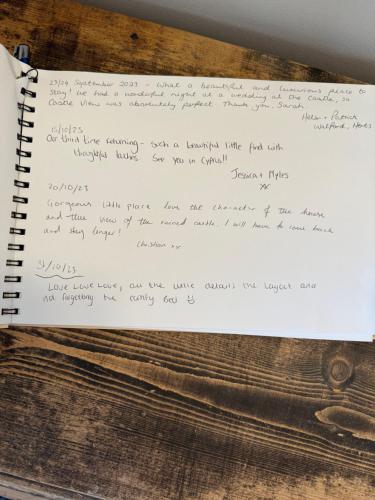 23/24 September 2023 - What a beautiful and luxurious place to
stay! We had a wonderful night at a wedding at the Castle, so
Castle View was absolutely perfect. Thank you, Sarah.
Helen + Patrick
Watford, Herts
15/10/23
Our third time returning - such a beautiful little find with
thoughtful touches. See you in Cyprus!!
Jessica + Myles
xx
20/10/23
Gorgeous little place love the character of the house
and the view of the ruined castle. I will have to come back
and stay longer!
Christian xx
31/10/23
Love Love Love, all the little details the layout and
not forgetting the comfy bed